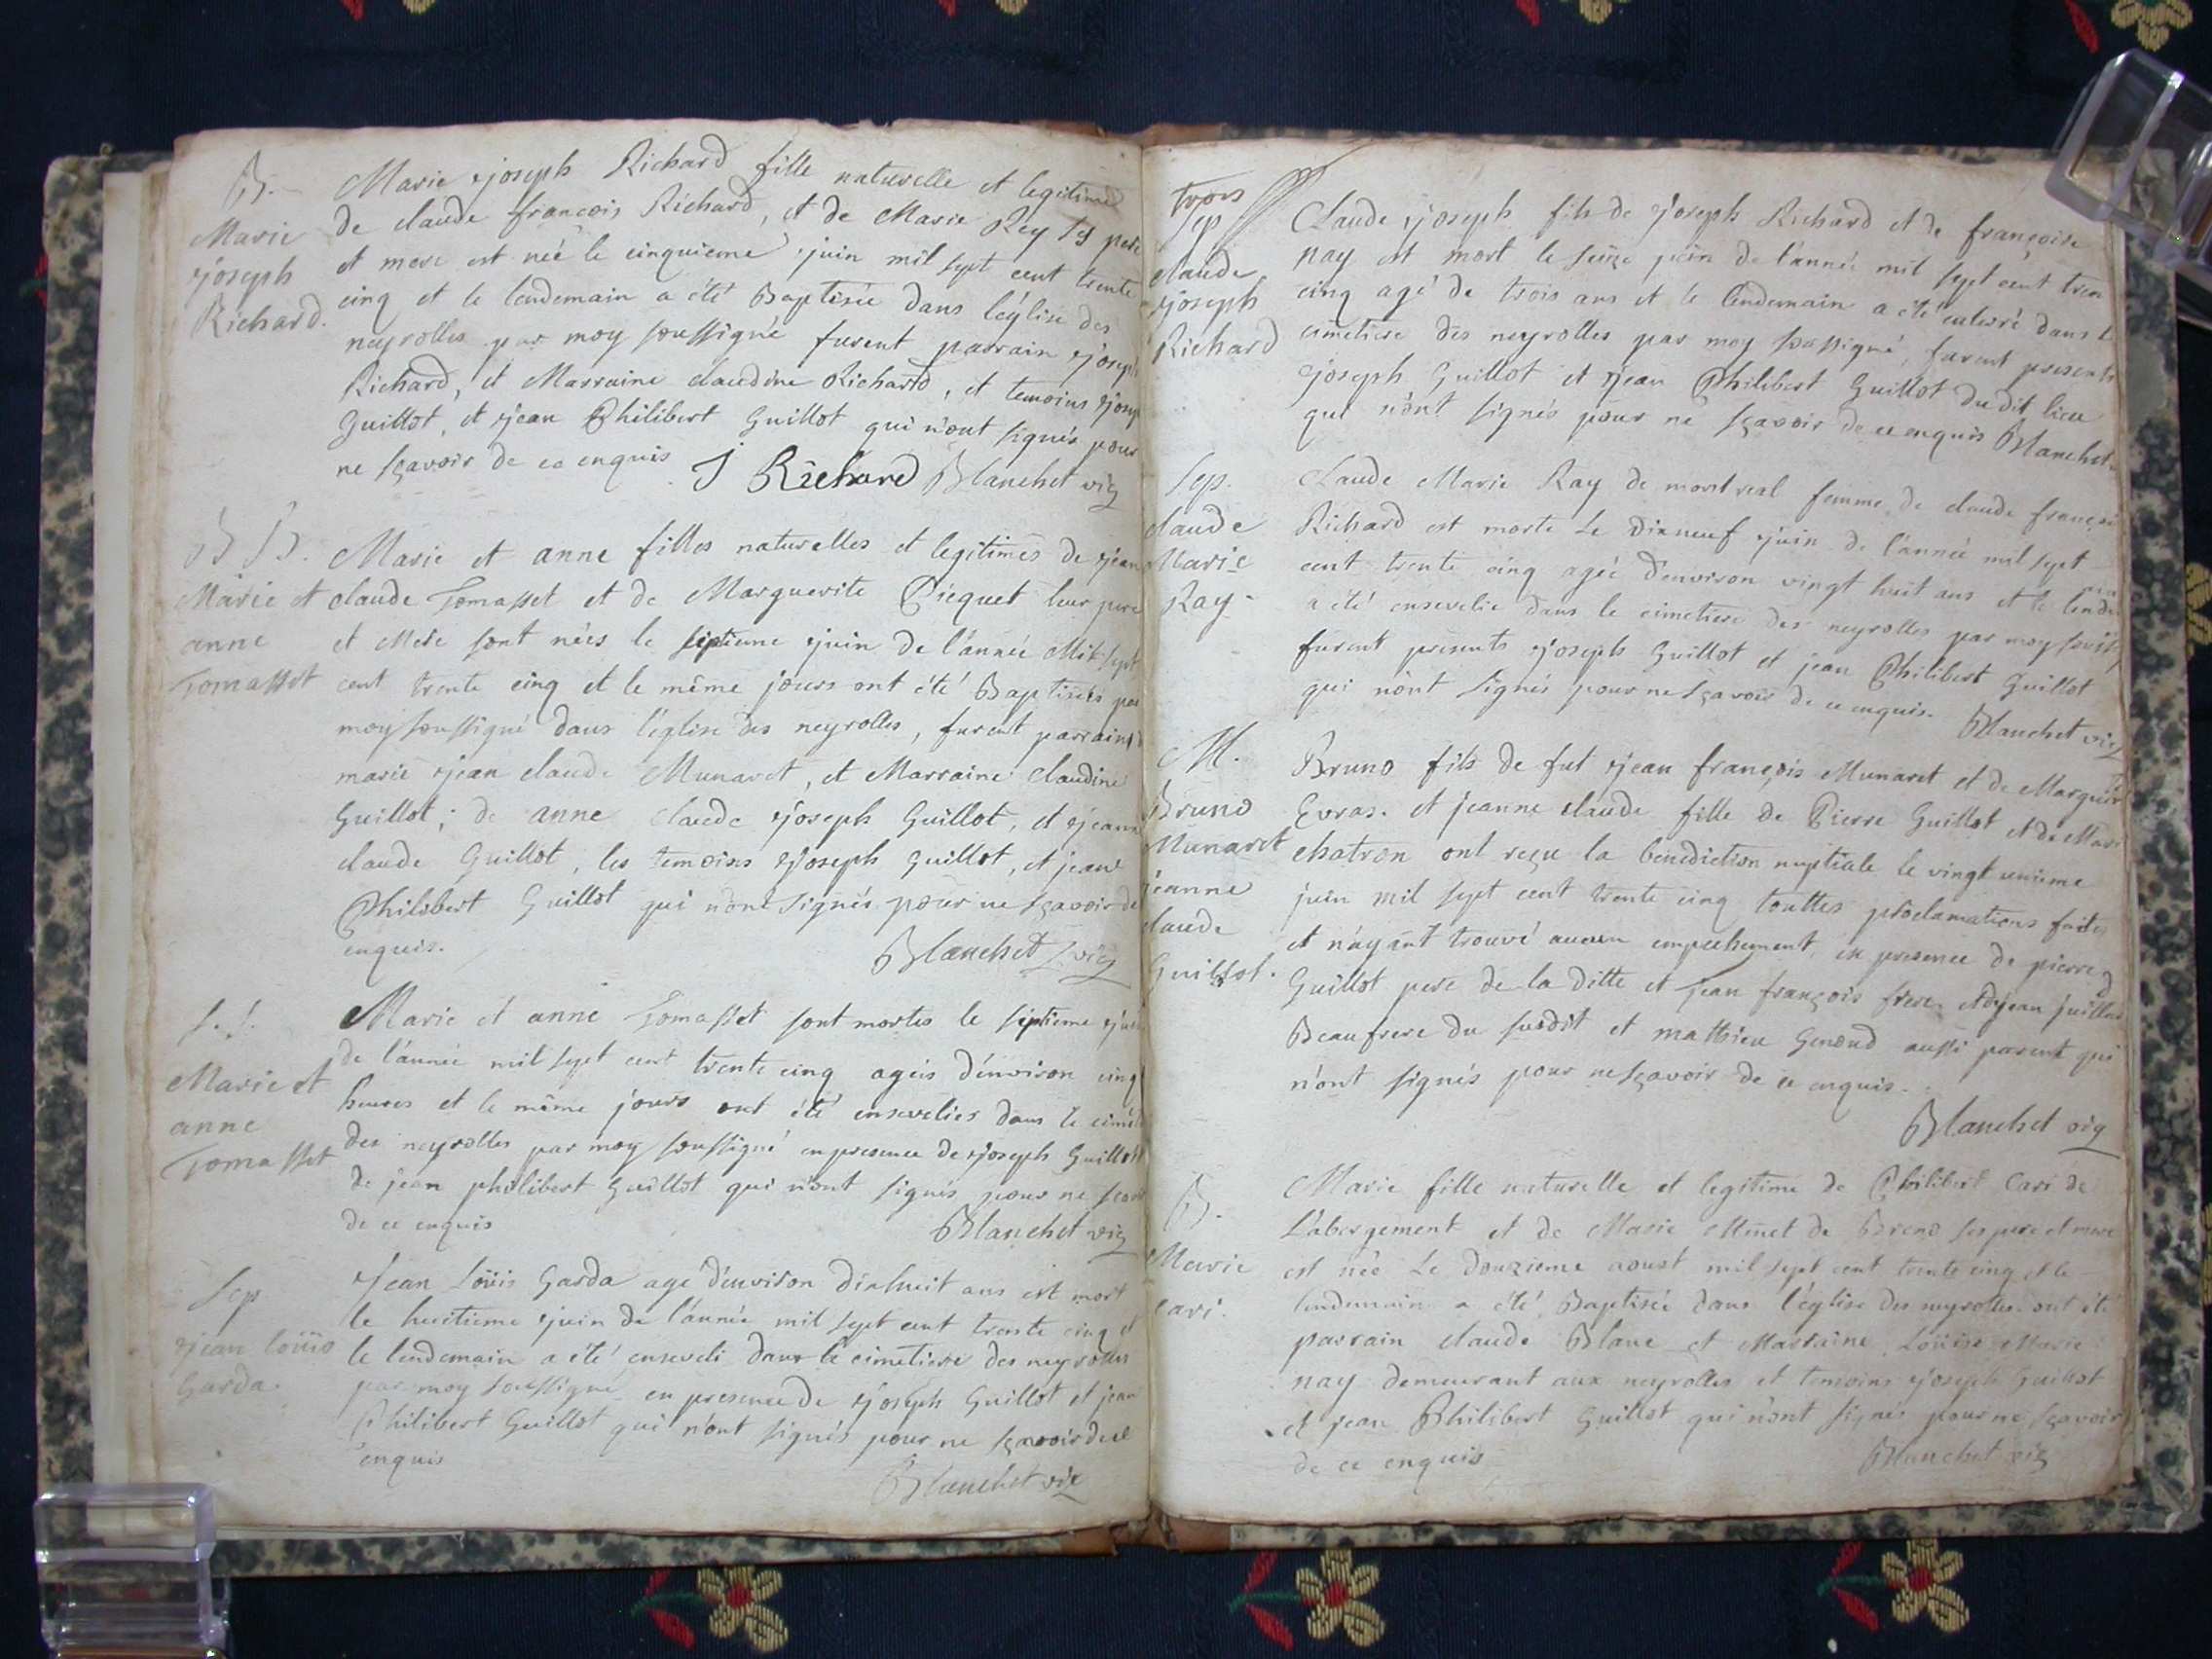 B.
Marie
Joseph
Richard.
Marie Joseph Richard fille naturelle et legitime
de claude françois Richard, et de Marie Rey ses pere
et mere est neé le cinquieme juin mil sept cent trente
cinq et le lendemain a été Baptisée dans léglise des
neyrolles par moy soussigné furent parrain joseph
Richard, et Marraine claudine Richard, et temoins Josep
Guillot, et jean Philibert Guillot qui n'ont signés pour
ne sçavoir de ce enquis J Richard Blanchet vic
B B.
Marie et
anne
Tomasset
Marie et anne filles naturelles et legitimes de jean
claude Tomasset et de Marguerite Picquet leur pere
et Mere sont nées le septieme juin de l'année Mil sept
cent trente cinq et le même jours ont été Baptisées par
moy soussigné dans l'église des neyrolles, furent parrain d
marie jean claude Munaret, et Marraine claudine
Guillot; de anne claude joseph Guillot, et jeanne
claude Guillot, les temoins joseph Guillot, et jean
Philibert Guillot qui n'ont signés pour ne sçavoir de
enquis.
Blanchet vic
S. S.
Marie et
anne
Tomasset
Marie et anne Tomasset sont mortes le septieme juin
de l'année mil sept cent trente cinq ageés d'environ cinq
heures et le même jours ont été ensevelies dans le cimet
des neyrolles par moy soussigné en presence de joseph Guillot
de jean philibert Guillot qui n'ont signés pour ne scavoir
de ce enquis
Blanchet vic
Sep
jean loüis
Garda.
Jean Loüis Garda age d'environ dixhuit ans est mort
le huitieme juin de l'année mil sept cent trente cinq et
le lendemain a été enseveli dans le cimetiere des neyrolles
par moy soussigné en presence de joseph Guillot et jean
Philibert Guillot qui n'ont signés pour ne sçavoir de ce
enquis
Blanchet vic
trois
Sep
claude
joseph
Richard
Claude joseph fils de joseph Richard et de françoise
nay est mort le seize juin de l'année mil sept cent tren
cinq agé de trois ans et le lendemain a été enterré dans le
cimetiere des neyrolles par moy soussigné, furent presents
joseph Guillot et jean Philibert Guillot dudit lieu
qui n'ont signés pour ne sçavoir de ce enquis Blanchet
Sep.
claude
Marie
Ray.
Claude Marie Ray de montreal femme de claude françois
Richard est morte Le Dixneuf juin de l'année mil sept
cent trente cinq ageé d'environ vingt huit ans et le lende
a été ensevelie dans le cimetiere des neyrolles par moy souss
furent presents joseph Guillot et jean Philibert Guillot
qui n'ont signés pour ne sçavoir de ce enquis. Blanchet vic
M.
Bruno
Munaret
jeanne
claude
Guillot.
Bruno fils de fut jean françois Munaret et de Marguer
Evras. et jeanne claude fille de Pierre Guillot et de Mari
chatron ont reçu la bénédiction nuptiale le vingt unieme
juin mil sept cent trente cinq touttes proclamations faites
et n'ayant trouvé aucun empechement, en presence de pierre
Guillot pere de la ditte et jean françois frere et de jean juillard
Beaufrere du susdit et mathieu Genoud aussi parent qui
n'ont signés pour ne sçavoir de ce enquis.
Blanchet vic
B.
Marie
Cari.
Marie fille naturelle et legitime de Philibert Cari de
L'abergement et de Marie Minet de Breno ses pere et mere
est neé Le douzieme aoust mil sept cent trente cinq et le
lendemain a été Baptisée dans l'église des neyrolles. ont été
parrain claude Blanc et Marraine Loüise Marie
nay demeurant aux neyrolles et temoins joseph Guillot
et jean Philibert Guillot qui n'ont signés pour ne sçavoir
de ce enquis
Blanchet vic